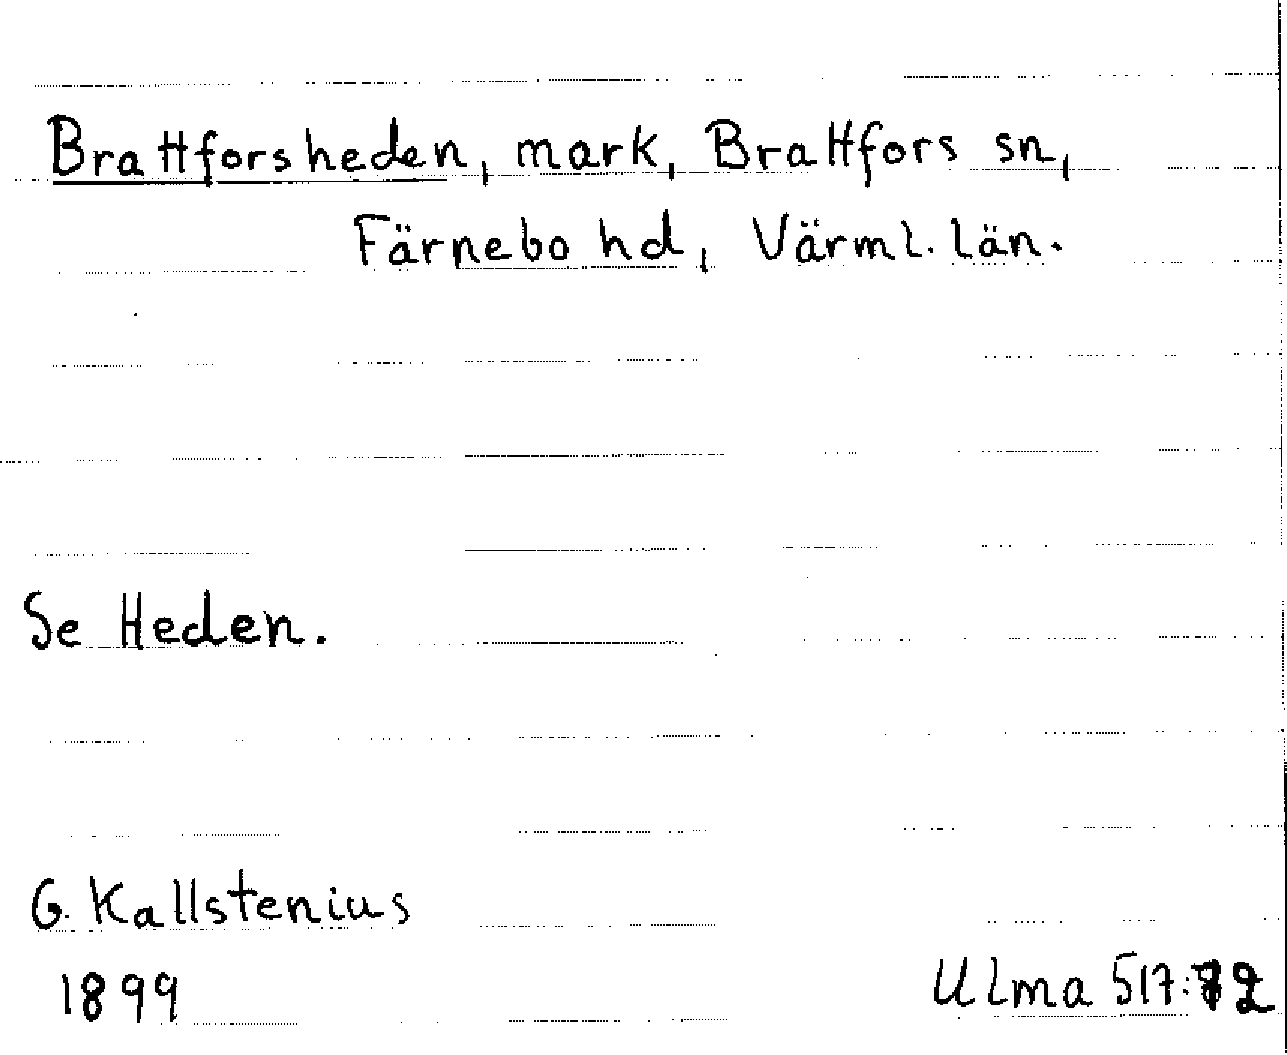 Brattforsheden, mark, Brattfors sn,
Färnebo hd, Värml. län.
Se Heden.
G. Kallstenius
1899
Ulma 517:72